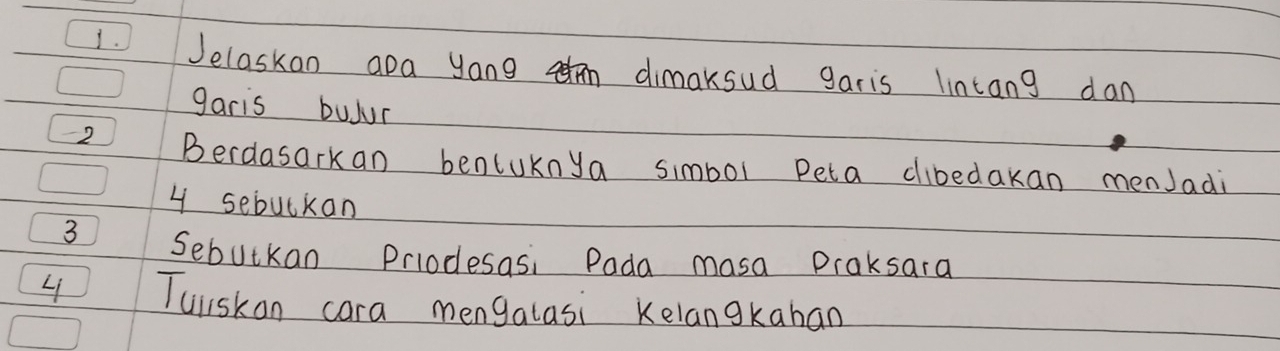 1. Jelaskan apa yang dimaksud garis lintang dan
garis bujur
2 Berdasarkan bentuknya simbol Peta dibedakan menjadi
4 sebutkan
3 Sebutkan Priodesasi Pada masa Praksara
4 Tuliskan cara mengatasi Kelangkahan